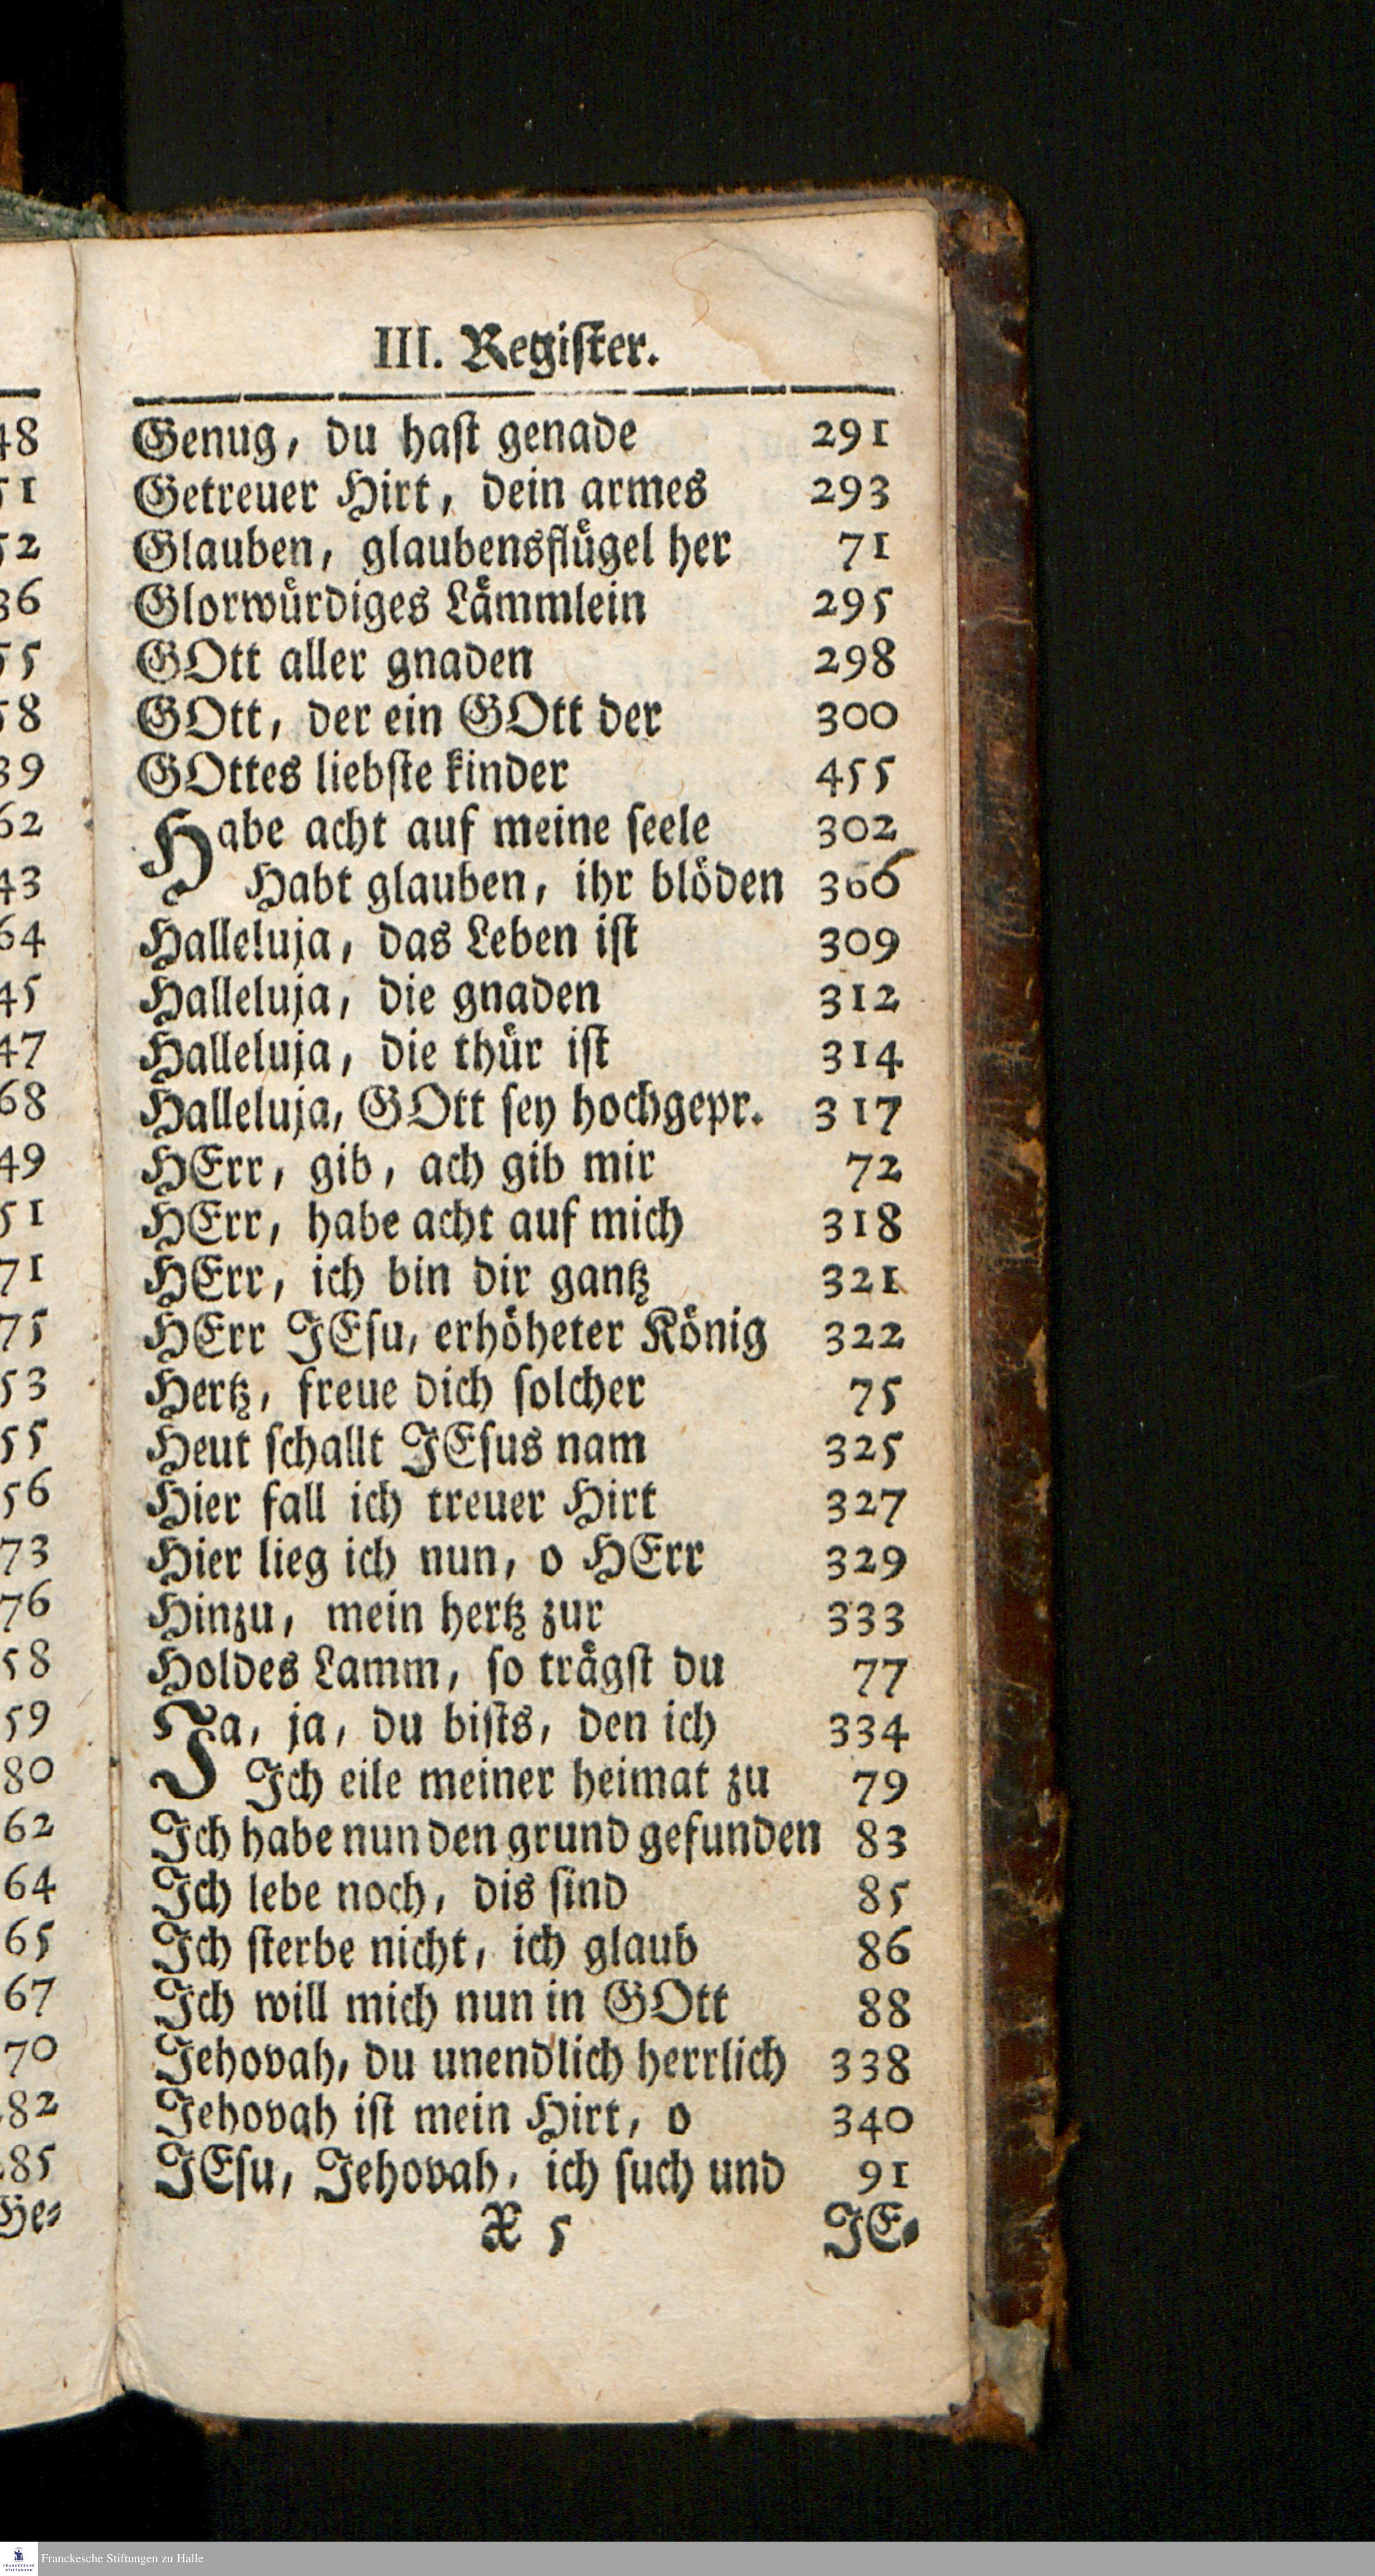 III. Regiſter.
Genug, du haſt genade 291
Getreuer Hirt, dein armes 293
Glauben, glaubensflügel her 71
Glorwürdiges Lämmlein 295
GOtt aller gnaden 298
GOtt, der ein GOtt der 300
GOttes liebſte kinder 455
Habe acht auf meine ſeele 302
Habt glauben, ihr blöden 366
Halleluja, das Leben iſt 309
Halleluja, die gnaden 312
Halleluja, die thür iſt 314
Halleluja, GOtt ſey hochgepr. 317
HErr, gib, ach gib mir 72
HErr, habe acht auf mich 318
HErr, ich bin dir gantz 321
HErr JEſu, erhöheter König 322
Hertz, freue dich ſolcher 75
Heut ſchallt JEſus nam 325
Hier fall ich treuer Hirt 327
Hier lieg ich nun, o HErr 329
Hinzu, mein hertz zur 333
Holdes Lamm, ſo trägſt du 77
Ja, ja, du biſts, den ich 334
Ich eile meiner heimat zu 79
Ich habe nun den grund gefunden 83
Ich lebe noch, dis ſind 85
Ich ſterbe nicht, ich glaub 86
Ich will mich nun in GOtt 88
Jehovah, du unendlich herrlich 338
Jehovah iſt mein Hirt, o 340
JEſu, Jehovah, ich ſuch und 91
X 5 JE⸗
Franckesche Stiftungen zu Halle